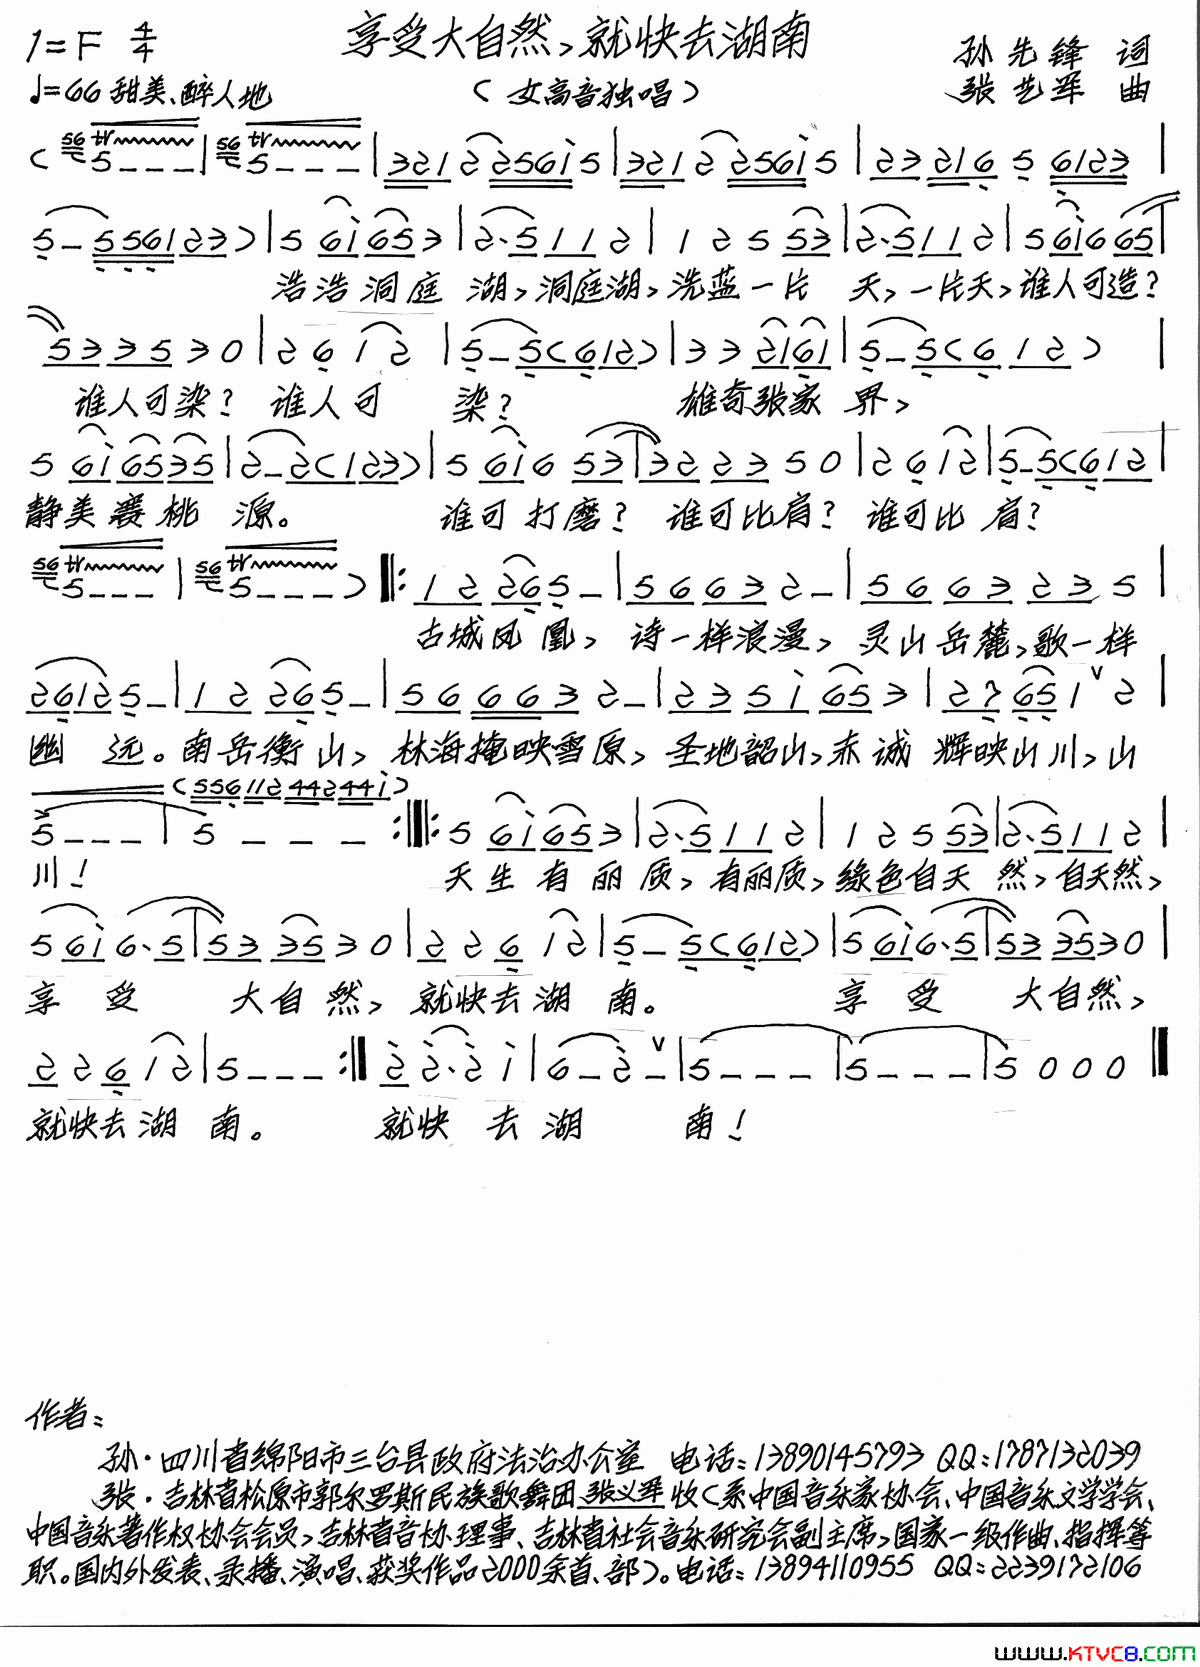 1=F 4/4
享受大自然,就快去湖南
♩=66 甜美、醉人地
(女高音独唱)
孙先锋 词
张艺军 曲
( 56 tr 5 - - - | 56 tr 5 - - - | 3 2 1 2 2 5 6 i 5 | 3 2 1 2 2 5 6 i 5 | 2 3 2 1 6 5 6 1 2 3 |
5 - 5 5 6 1 2 3 ) | 5 6 i 6 5 3 | 2 · 5 1 1 2 | 1 2 5 5 3 | 2 · 5 1 1 2 | 5 6 i 6 6 5 |
浩浩洞庭 湖,洞庭湖,洗蓝一片 天,一片天,谁人可造?
5 3 3 5 3 0 | 2 6 1 2 | 5 - 5 ( 6 1 2 ) | 3 3 2 1 6 1 | 5 - 5 ( 6 1 2 ) |
谁人可染? 谁人可 染? 雄奇张家 界,
5 6 i 6 5 3 5 | 2 - 2 ( 1 2 3 ) | 5 6 i 6 5 3 | 3 2 2 3 5 0 | 2 6 1 2 | 5 - 5 ( 6 1 2 |
静美赛桃 源。 谁可打磨? 谁可比肩? 谁可比 肩?
56 tr 5 - - - | 56 tr 5 - - - ) ‖: 1 2 2 6 5 - | 5 6 6 3 2 - | 5 6 6 3 2 3 5 |
古城凤凰, 诗一样浪漫, 灵山岳麓,歌一样
2 6 1 2 5 - | 1 2 2 6 5 - | 5 6 6 6 3 2 - | 2 3 5 i 6 5 3 | 2 7 6 5 1 ∨ 2 |
幽 远。南岳衡山, 林海掩映雪原, 圣地韶山,赤诚 辉映山川,山
( 5 5 6 1 1 2 4 4 2 4 4 i )
5 - - - | 5 - - - :‖: 5 6 i 6 5 3 | 2 · 5 1 1 2 | 1 2 5 5 3 | 2 · 5 1 1 2 |
川! 天生有丽 质,有丽质,绿色自天 然,自天然,
5 6 i 6 · 5 | 5 3 3 5 3 0 | 2 2 6 1 2 | 5 - 5 ( 6 1 2 ) | 5 6 i 6 · 5 | 5 3 3 5 3 0 |
享 受 大自然, 就快去湖 南。 享 受 大自然,
2 2 6 1 2 | 5 - - - :‖ 2 2 · 2 i | 6 - 2 ∨ - | 5 - - - | 5 - - - | 5 0 0 0 ‖
就快去湖 南。 就快 去 湖 南!
作者:
孙·四川省绵阳市三台县政府法治办公室 电话:13890145793 QQ:1787132039
张·吉林省松原市郭尔罗斯民族歌舞团张义军收(系中国音乐家协会、中国音乐文学学会、
中国音乐著作权协会会员,吉林省音协理事、吉林省社会音乐研究会副主席,国家一级作曲、指挥等
职。国内外发表、录播、演唱、获奖作品2000余首、部)。电话:13894110955 QQ:2239172106
www.KTVC8.com